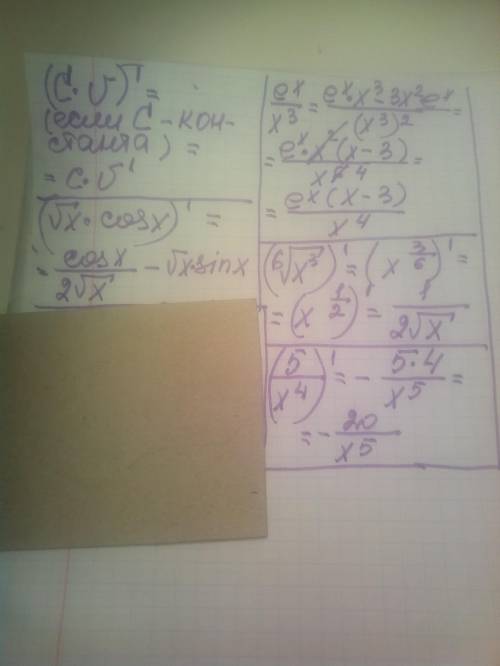 (C·V)' =
(если C - кон-
станта) =
= C·V'
(√x · cosx)' =
= cosx/(2√x) - √x·sinx
e^x/x^3 = (e^x·x^3 - 3x^2e^x)/(x^3)^2 =
= e^x·x^2(x-3)/x^6 4 =
= e^x(x-3)/x^4
(6√x^3)' = (x^(3/6))' =
= (x^(1/2))' = 1/(2√x)
(5/x^4)' = - 5·4/x^5 =
= - 20/x^5